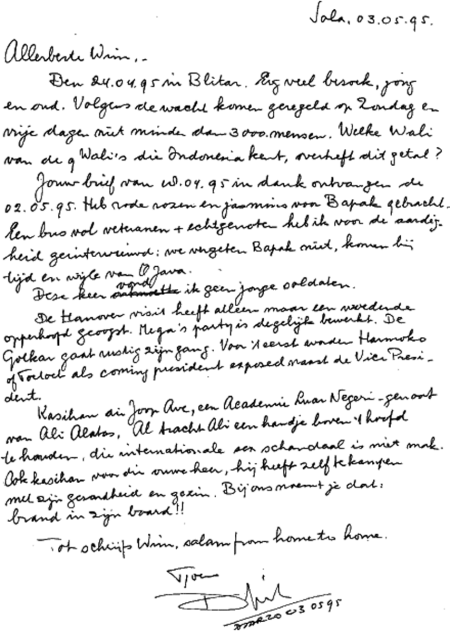 Solo, 03.05.95.
Allerbeste Wim,.-
Den 24.04.95 in Blitar. Erg veel bezoek, jong
en oud. Volgens de wacht komen geregeld op Zondag en
vrije dagen niet minder dan 3000 mensen. Welke Wali
van de 9 Wali's die Indonesia kent, overtreft dit getal?
Jouw brief van 10.04.95 in dank ontvangen de
02.05.95. Heb rode rozen en jasmins voor Bapak gebracht.
Een bus vol veteranen + echtgenoten heb ik voor de aardig-
heid geinterviewd: we vergeten Bapak niet, komen bij
tijd en wijle van O Java.
Deze keer vond ik geen jonge soldaten.
De Hanover visit heeft alleen maar een woedende
opperhoofd geoogst. Mega's party is degelijk bewerkt. De
Golkar gaat rustig zijn gang. Voor 't eerst worden Harmoko
of Toetoet als coming president exposed naast de Vice Presi-
dent.
Kasihan die Joop Ave, een Academie Luar Negeri-genoot
van Ali Alatas. Al tracht Ali een handje boven 't hoofd
te houden, die internationale sex schandaal is niet mak.
Ook kasihan voor die ouwe heer, hij heeft zelf te kampen
met zijn gezondheid en gezin. Bij ons noemt je dat:
brand in zijn baard!!
Tot schrijfs Wim, salam from home to home.
Tjoe
03 05 95